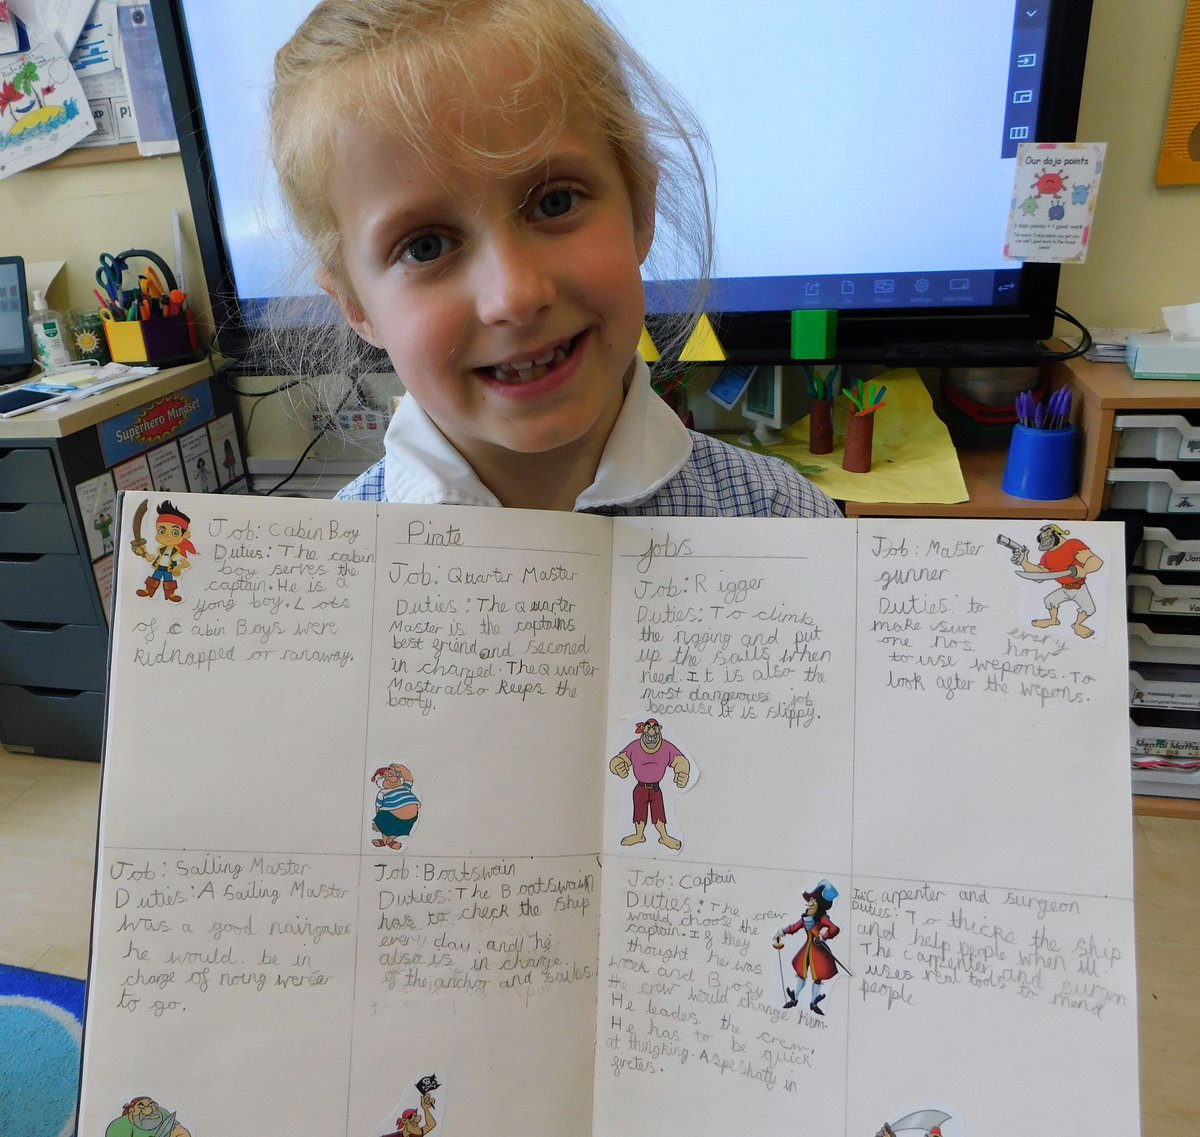 Our dojo points
3 dojo points = 1 good work
Superhero Mindset
Mental Maths
Pirate
jobs
Job: Cabin Boy
Duties: The cabin
boy serves the
captain. He is a
yong boy. Lots
of cabin Boys were
kidnapped or ranaway.
Job: Quarter Master
Duties: The Quarter
Master is the captains
best griend and seconed
in charged. The Quarter
Master also keeps the
booty.
Job: Rigger
Duties: To climb
the rigging and put
up the sails when
need. It is also the
most dangerouse job
because it is slippy.
Job: Master
gunner
Duties: to
make sure every
one nos how
to use weponts. To
look after the wepons.
Job: Sailing Master
Duties: A Sailing Master
was a good naivgater
he would be in
charge of noing wer
to go.
Job: Boatswain
Duties: The Boatswain
has to check the ship
every day and he
also is in charge
of the anchor and sailes.
Job: Captain
Duties: The crew
would choose the
captain. If they
thought he was
weak and Bossy
the crew would change him.
He leades the crew.
He has to be quick
at thingking. A speshaty in
giretes.
Job: Carpenter and surgeon
Duties: To thicks the ship
and help people when ill
The carpenter and surgon
uses real tools to mend
people